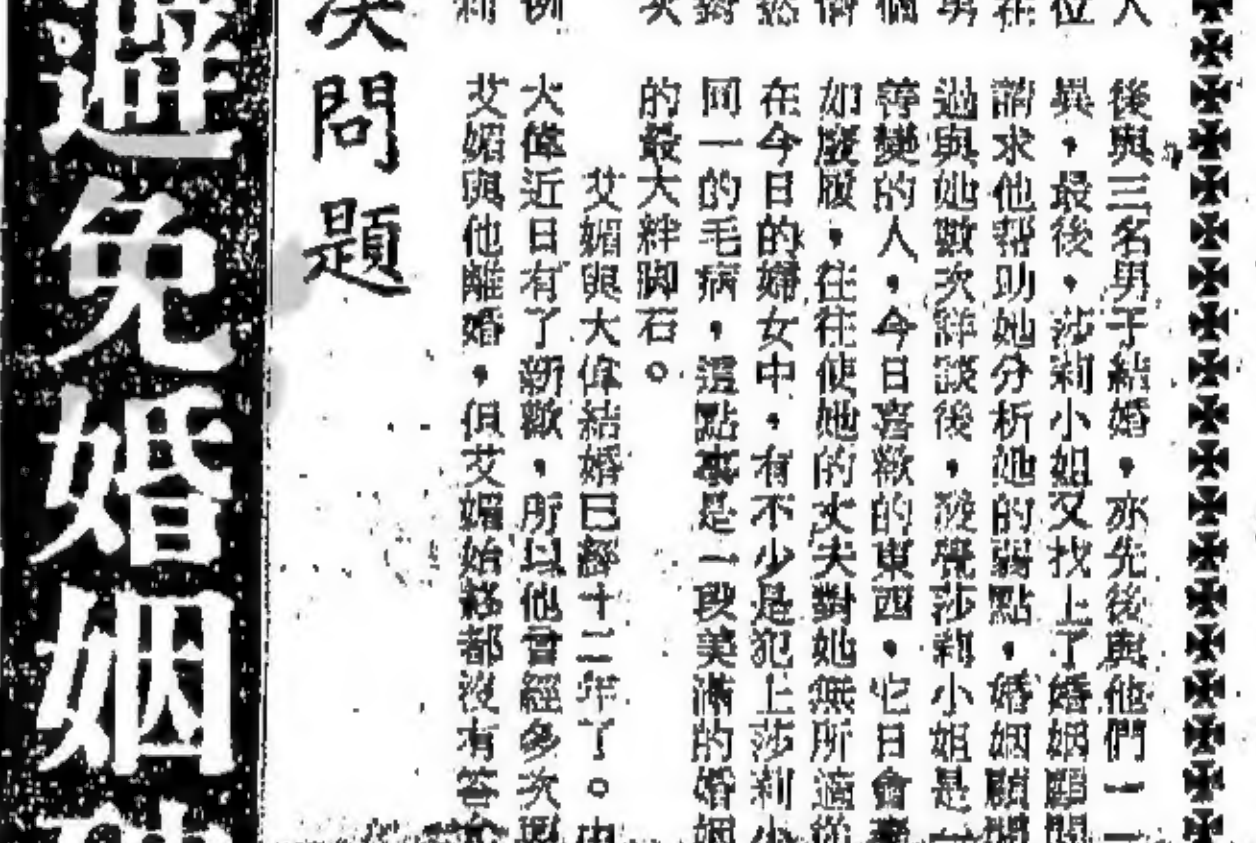 後與三名男子結婚，亦先後與他們一一
異，最後，莎莉小姐又找上了婚姻顧問
請求他幫助她分析她的弱點，婚姻顧問
過與她數次詳談後，發覺莎莉小姐是一
善變的人，今日喜歡的東西，它日會
如廢履，往往使她的丈夫對她無所適從
在今日的婦女中，有不少是犯上莎莉小
同一的毛病，這點事是一段美滿的婚姻
的最大絆脚石。
艾媚與大偉結婚已經十二年了。由
大偉近日有了新歡，所以他曾經多次
艾媚與他離婚，但艾媚始終都沒有答
決問題
避免婚姻